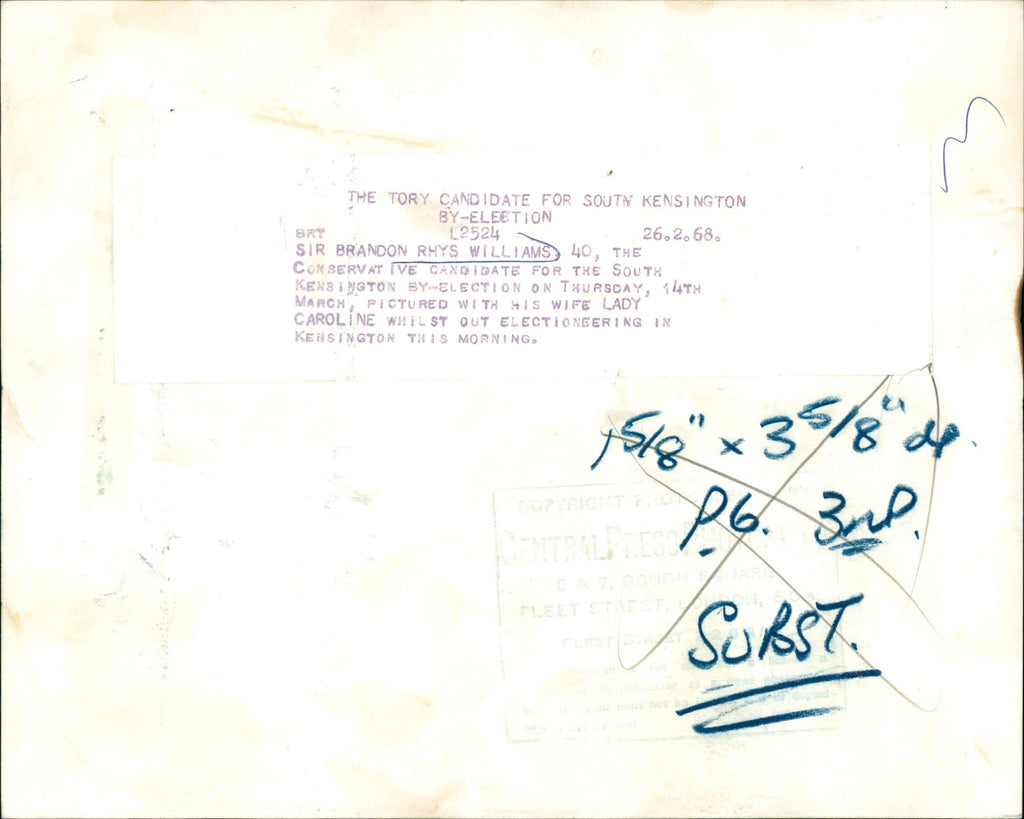 THE TORY CANDIDATE FOR SOUTH KENSINGTON
BY-ELECTION
BRT L2524 26.2.68.
SIR BRANDON RHYS WILLIAMS, 40, THE
CONSERVATIVE CANDIDATE FOR THE SOUTH
KENSINGTON BY-ELECTION ON THURSDAY, 14TH
MARCH, PICTURED WITH HIS WIFE LADY
CAROLINE WHILST OUT ELECTIONEERING IN
KENSINGTON THIS MORNING.
5/8" x 3 5/8" dp.
P6. 3rd.
SUBST.
COPYRIGHT
CENTRAL PRESS
& 7, GOUGH SQUARE
FLEET STREET, LONDON, E.C.4
FLEET STREET
must not be